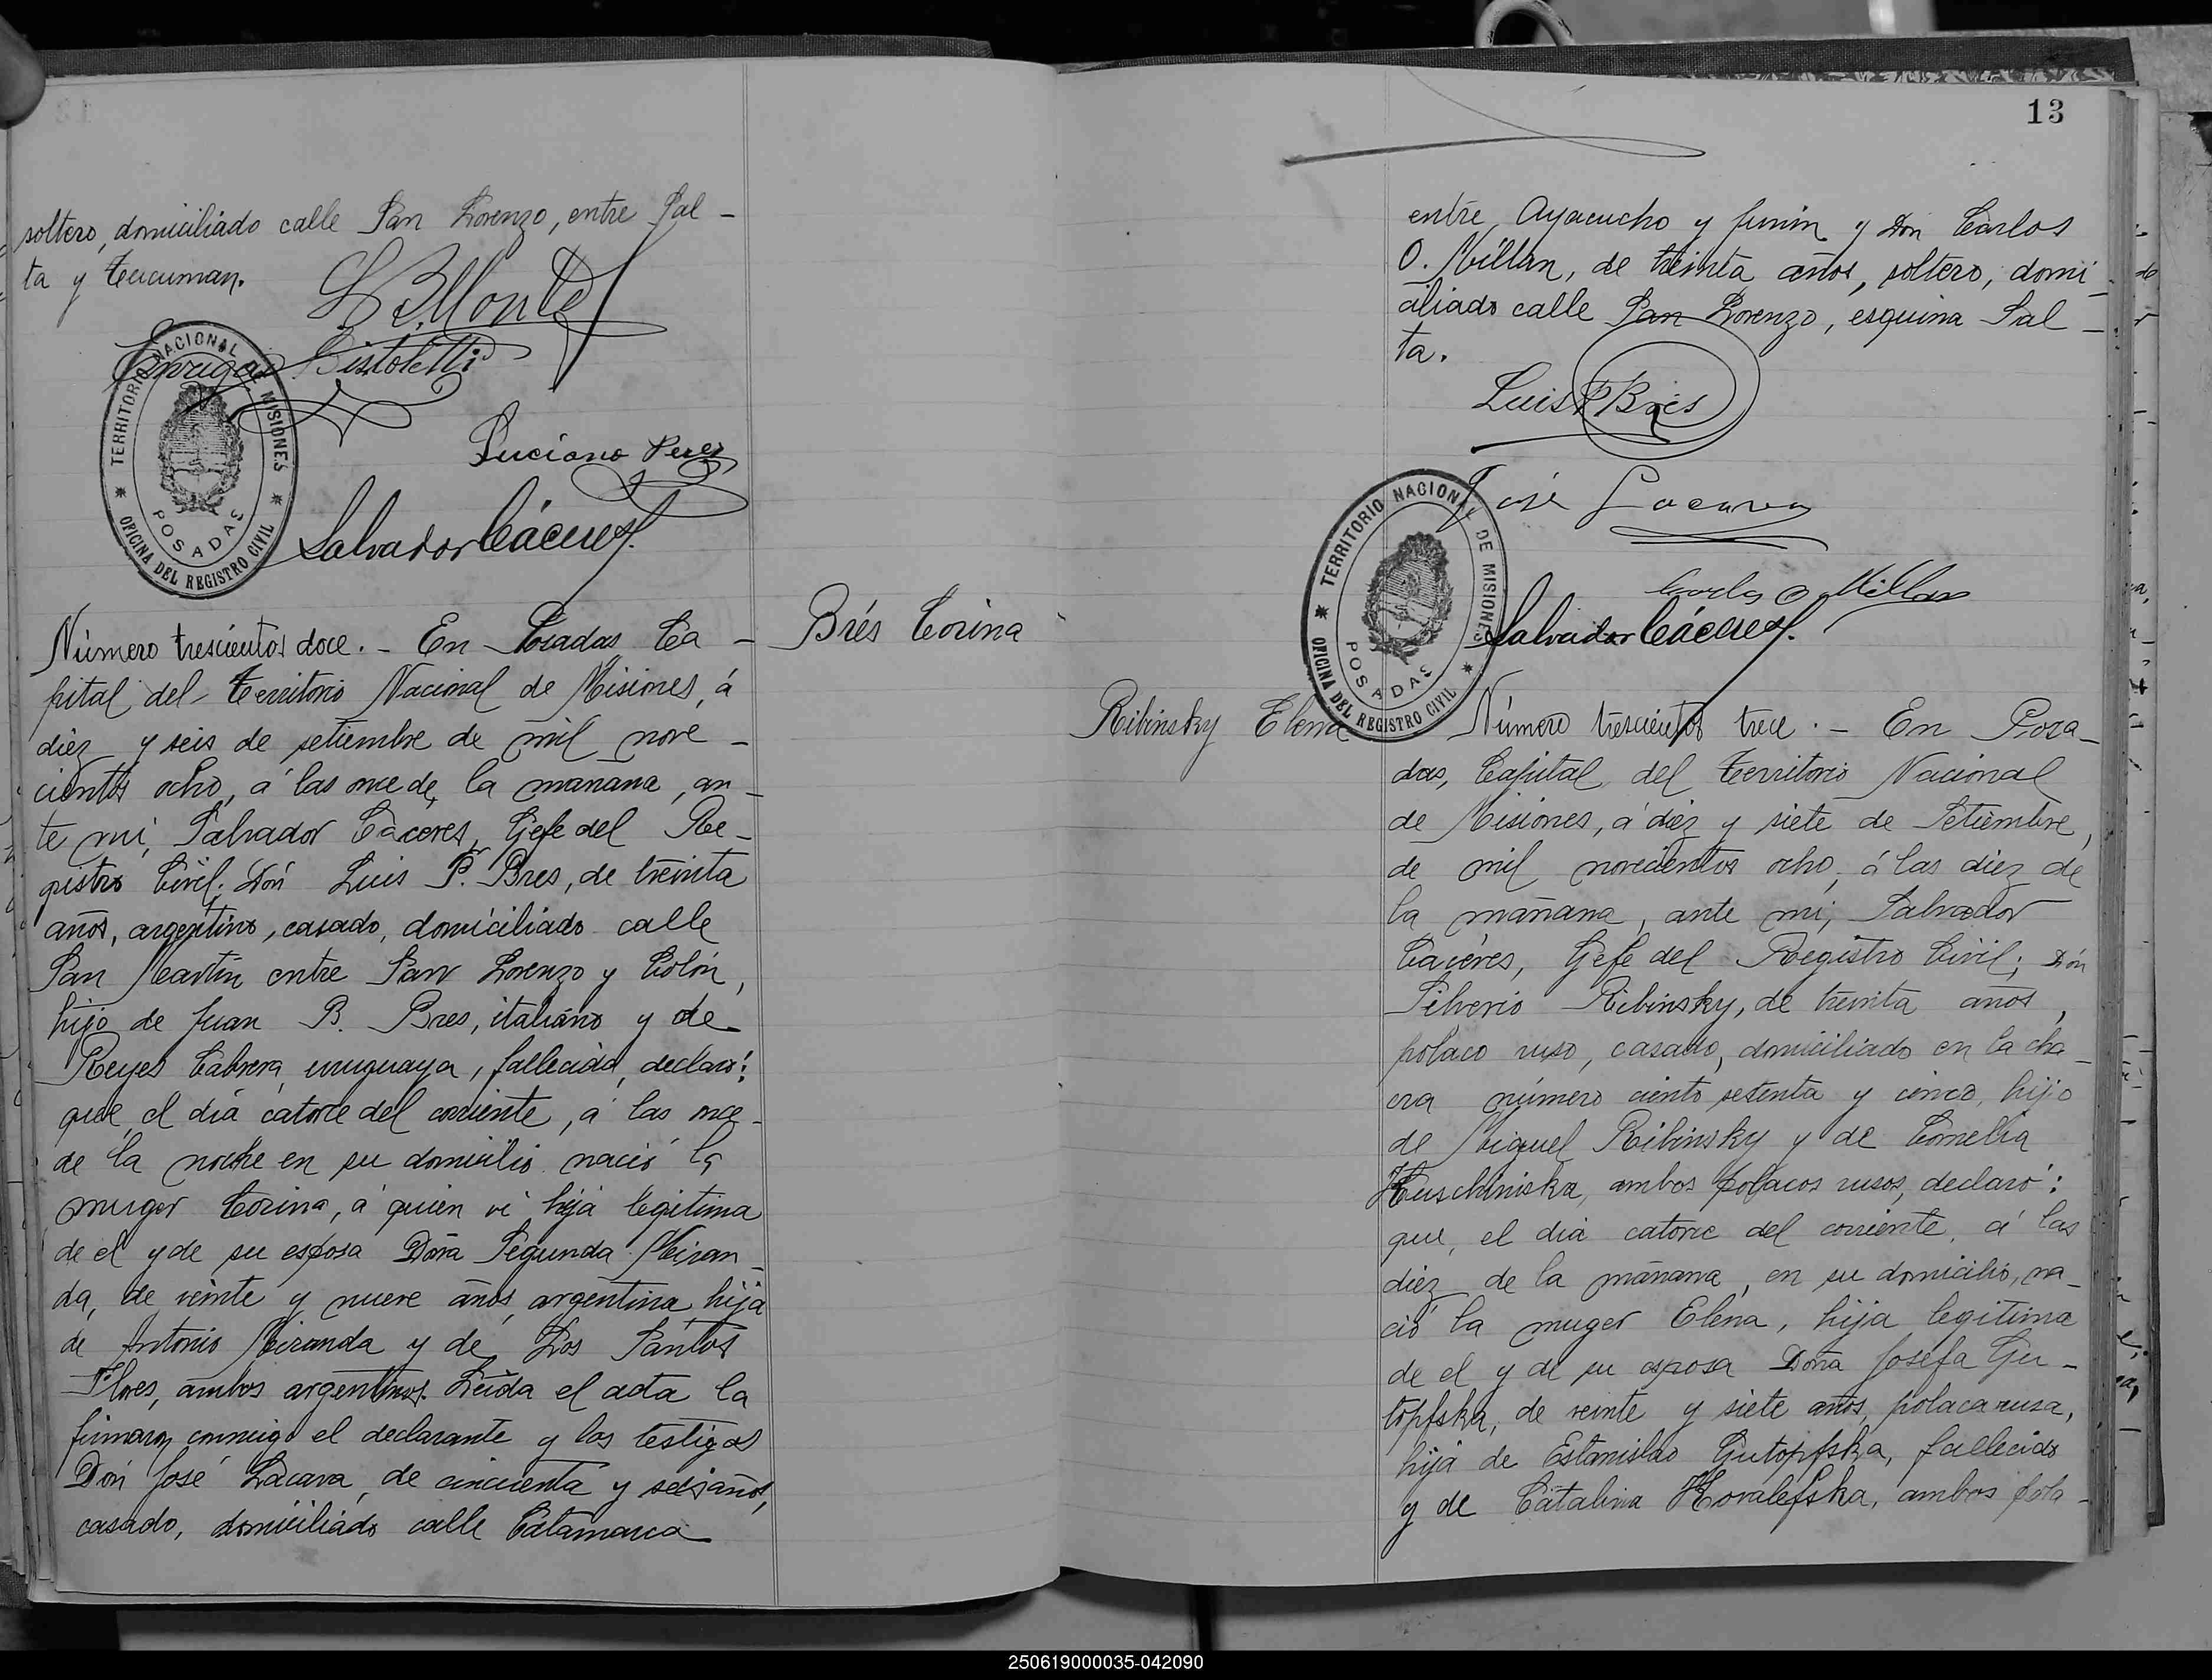 soltero, domiciliado calle San Lorenzo, entre Sal-
ta y Tucuman.
Enrique Pistoletti
Luciano Perez
Salvador Cáceres
TERRITORIO NACIONAL DE MISIONES
POSADAS
OFICINA DEL REGISTRO CIVIL
Brés Corina
Número trescientos doce. - En Posadas Ca-
pital del Territorio Nacional de Misiones, á
diez y seis de setiembre de mil nove-
cientos ocho, á las once de la mañana, an-
te mi, Salvador Cáceres, Gefe del Re-
gistro Civil. Dón Luis P. Bres, de treinta
años, argentino, casado, domiciliado calle
San Martin entre San Lorenzo y Colón,
hijo de Juan B. Bres, italiano y de
Reyes Cabrera, uruguaya, fallecida, declaró:
que, el dia catorce del corriente, á las once
de la noche en su domicilio nació la
muger Corina, á quien vi hija legitima
de el y de su esposa Doña Segunda Miran-
da, de veinte y nueve años, argentina hija
de Antonio Miranda y de Los Santos
Flores, ambos argentinos. Leida el acta la
firmaron conmigo el declarante y los testigos
Dón José Lacava, de cincuenta y seis años,
casado, domiciliado calle Catamarca
13
entre Ayacucho y Junin y Don Carlos
O. Millan, de treinta años, soltero, domi-
ciliado calle San Lorenzo, esquina Sal-
ta.
Luis P. Bres
José Lacava
Carlos O. Millan
Salvador Cáceres
TERRITORIO NACIONAL DE MISIONES
POSADAS
OFICINA DEL REGISTRO CIVIL
Ribinsky Elena
Número trescientos trece. - En Posa-
das, Capital del Territorio Nacional
de Misiones, á diez y siete de Setiembre,
de mil novecientos ocho, á las diez de
la mañana, ante mi, Salvador
Caceres, Gefe del Registro Civil; Dón
Silverio Ribinsky, de treinta años,
polaco ruso, casado, domiciliado en la cha-
cra número ciento setenta y cinco, hijo
de Miguel Ribinsky y de Cornelia
Huschiniska, ambos polacos rusos, declaró:
que, el dia catorce del corriente, á las
diez de la mañana, en su domicilio, na-
ció la muger Elena, hija legitima
de el y de su esposa Doña Josefa Gu-
topfska, de veinte y siete años, polaca rusa,
hija de Estanislao Gutopfska, fallecido
y de Catalina Kovalefska, ambos pola-
250619000035-042090